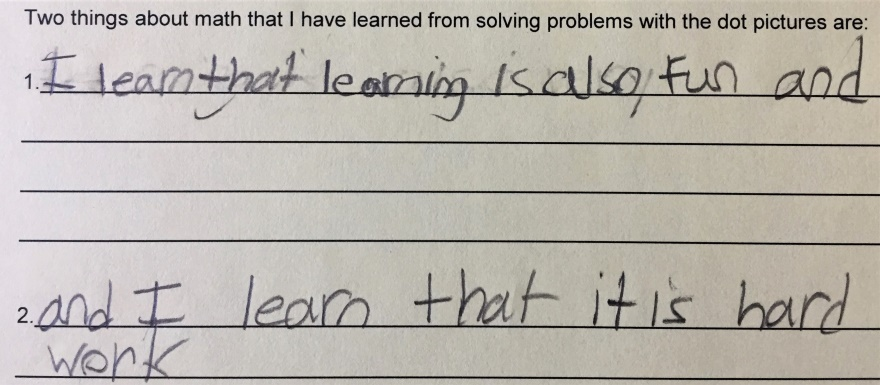 Two things about math that I have learned from solving problems with the dot pictures are:
1. I learn that learning is also, fun and
2. and I learn that it is hard
work